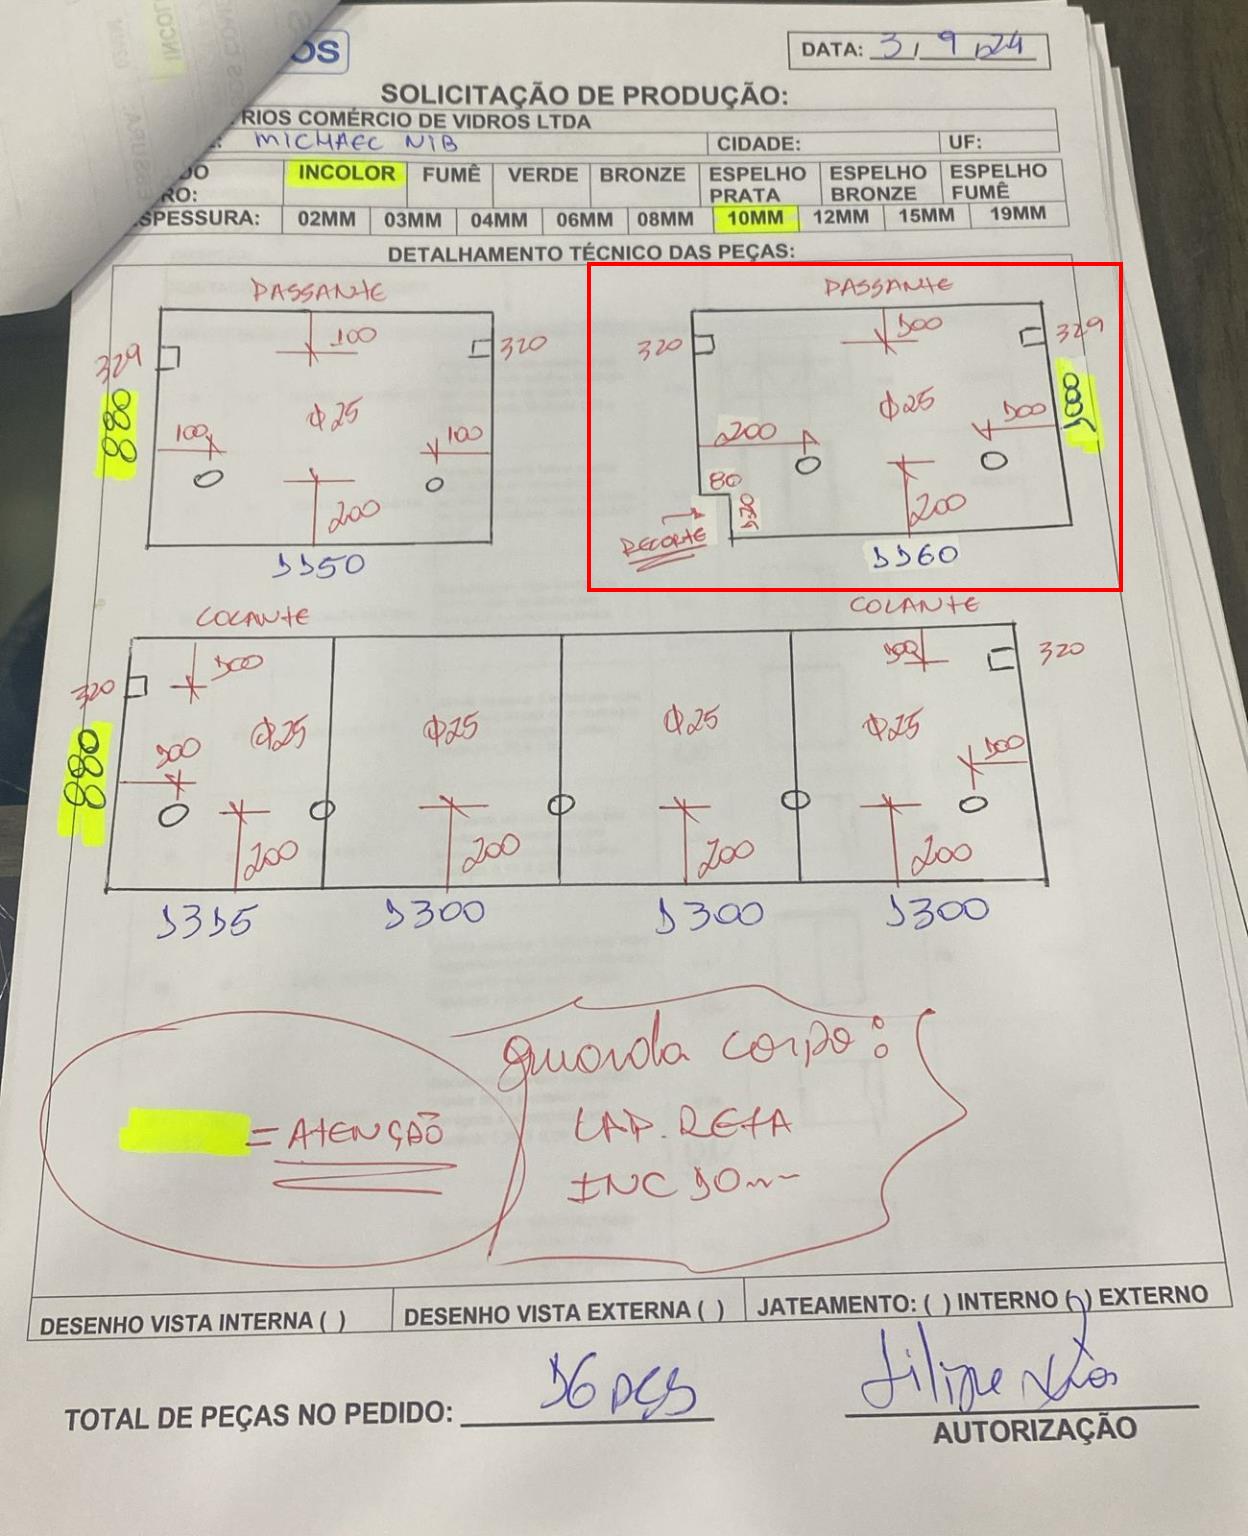 OS
DATA: 3, 9, 24
SOLICITAÇÃO DE PRODUÇÃO:
RIOS COMÉRCIO DE VIDROS LTDA
MICHAEL NIB CIDADE: UF:
DO INCOLOR FUMÊ VERDE BRONZE ESPELHO ESPELHO ESPELHO
RO: PRATA BRONZE FUMÊ
SPESSURA: 02MM 03MM 04MM 06MM 08MM 10MM 12MM 15MM 19MM
DETALHAMENTO TÉCNICO DAS PEÇAS:
PASSANTE
100
329
320
880
Φ25
100
100
200
1150
PASSANTE
100
320
329
1000
Φ25
200
100
80
120
RECORTE
200
1160
COLANTE
100
320
880
Φ25
100
200
1315
Φ25
200
1300
Φ25
200
1300
COLANTE
100
320
Φ25
100
200
1300
= ATENÇÃO
guarda corpo:
LAP. RETA
INC 10mm
DESENHO VISTA INTERNA ( ) DESENHO VISTA EXTERNA ( ) JATEAMENTO: ( ) INTERNO ( ) EXTERNO
TOTAL DE PEÇAS NO PEDIDO: 16 pçs
AUTORIZAÇÃO